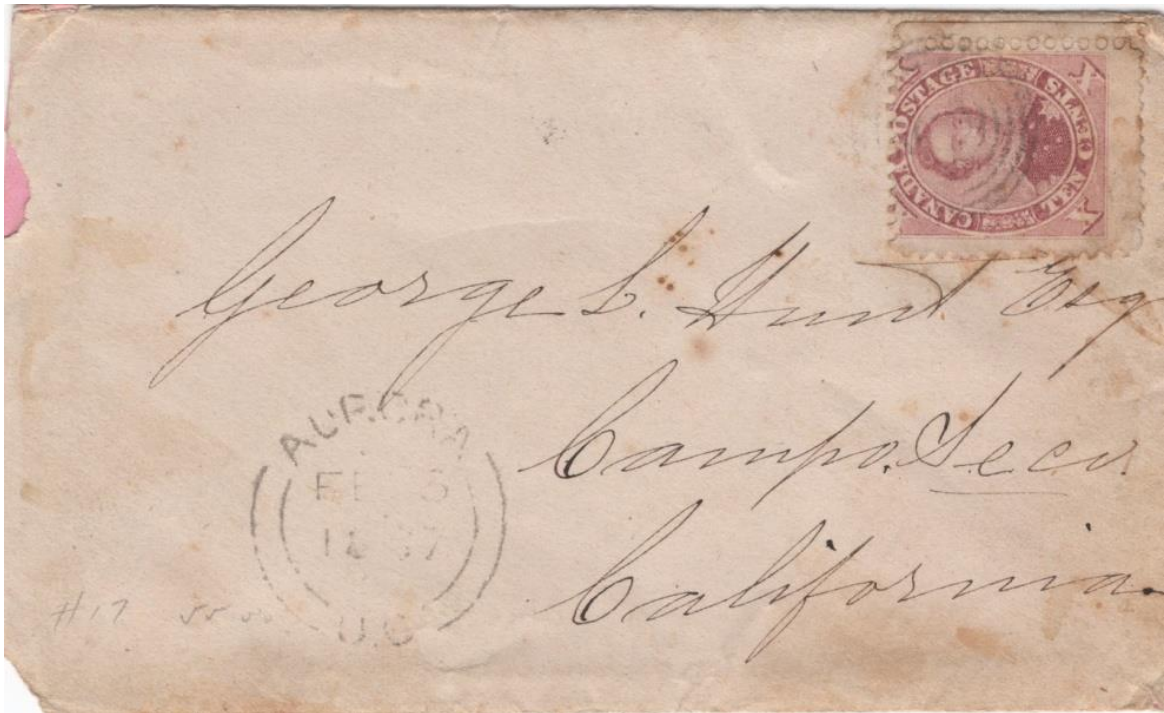 CANADA POSTAGE TEN CENTS
X
George S. Hunt Esq
Campo Seco
California
AURORA
FE 5
1867
U.C
#17